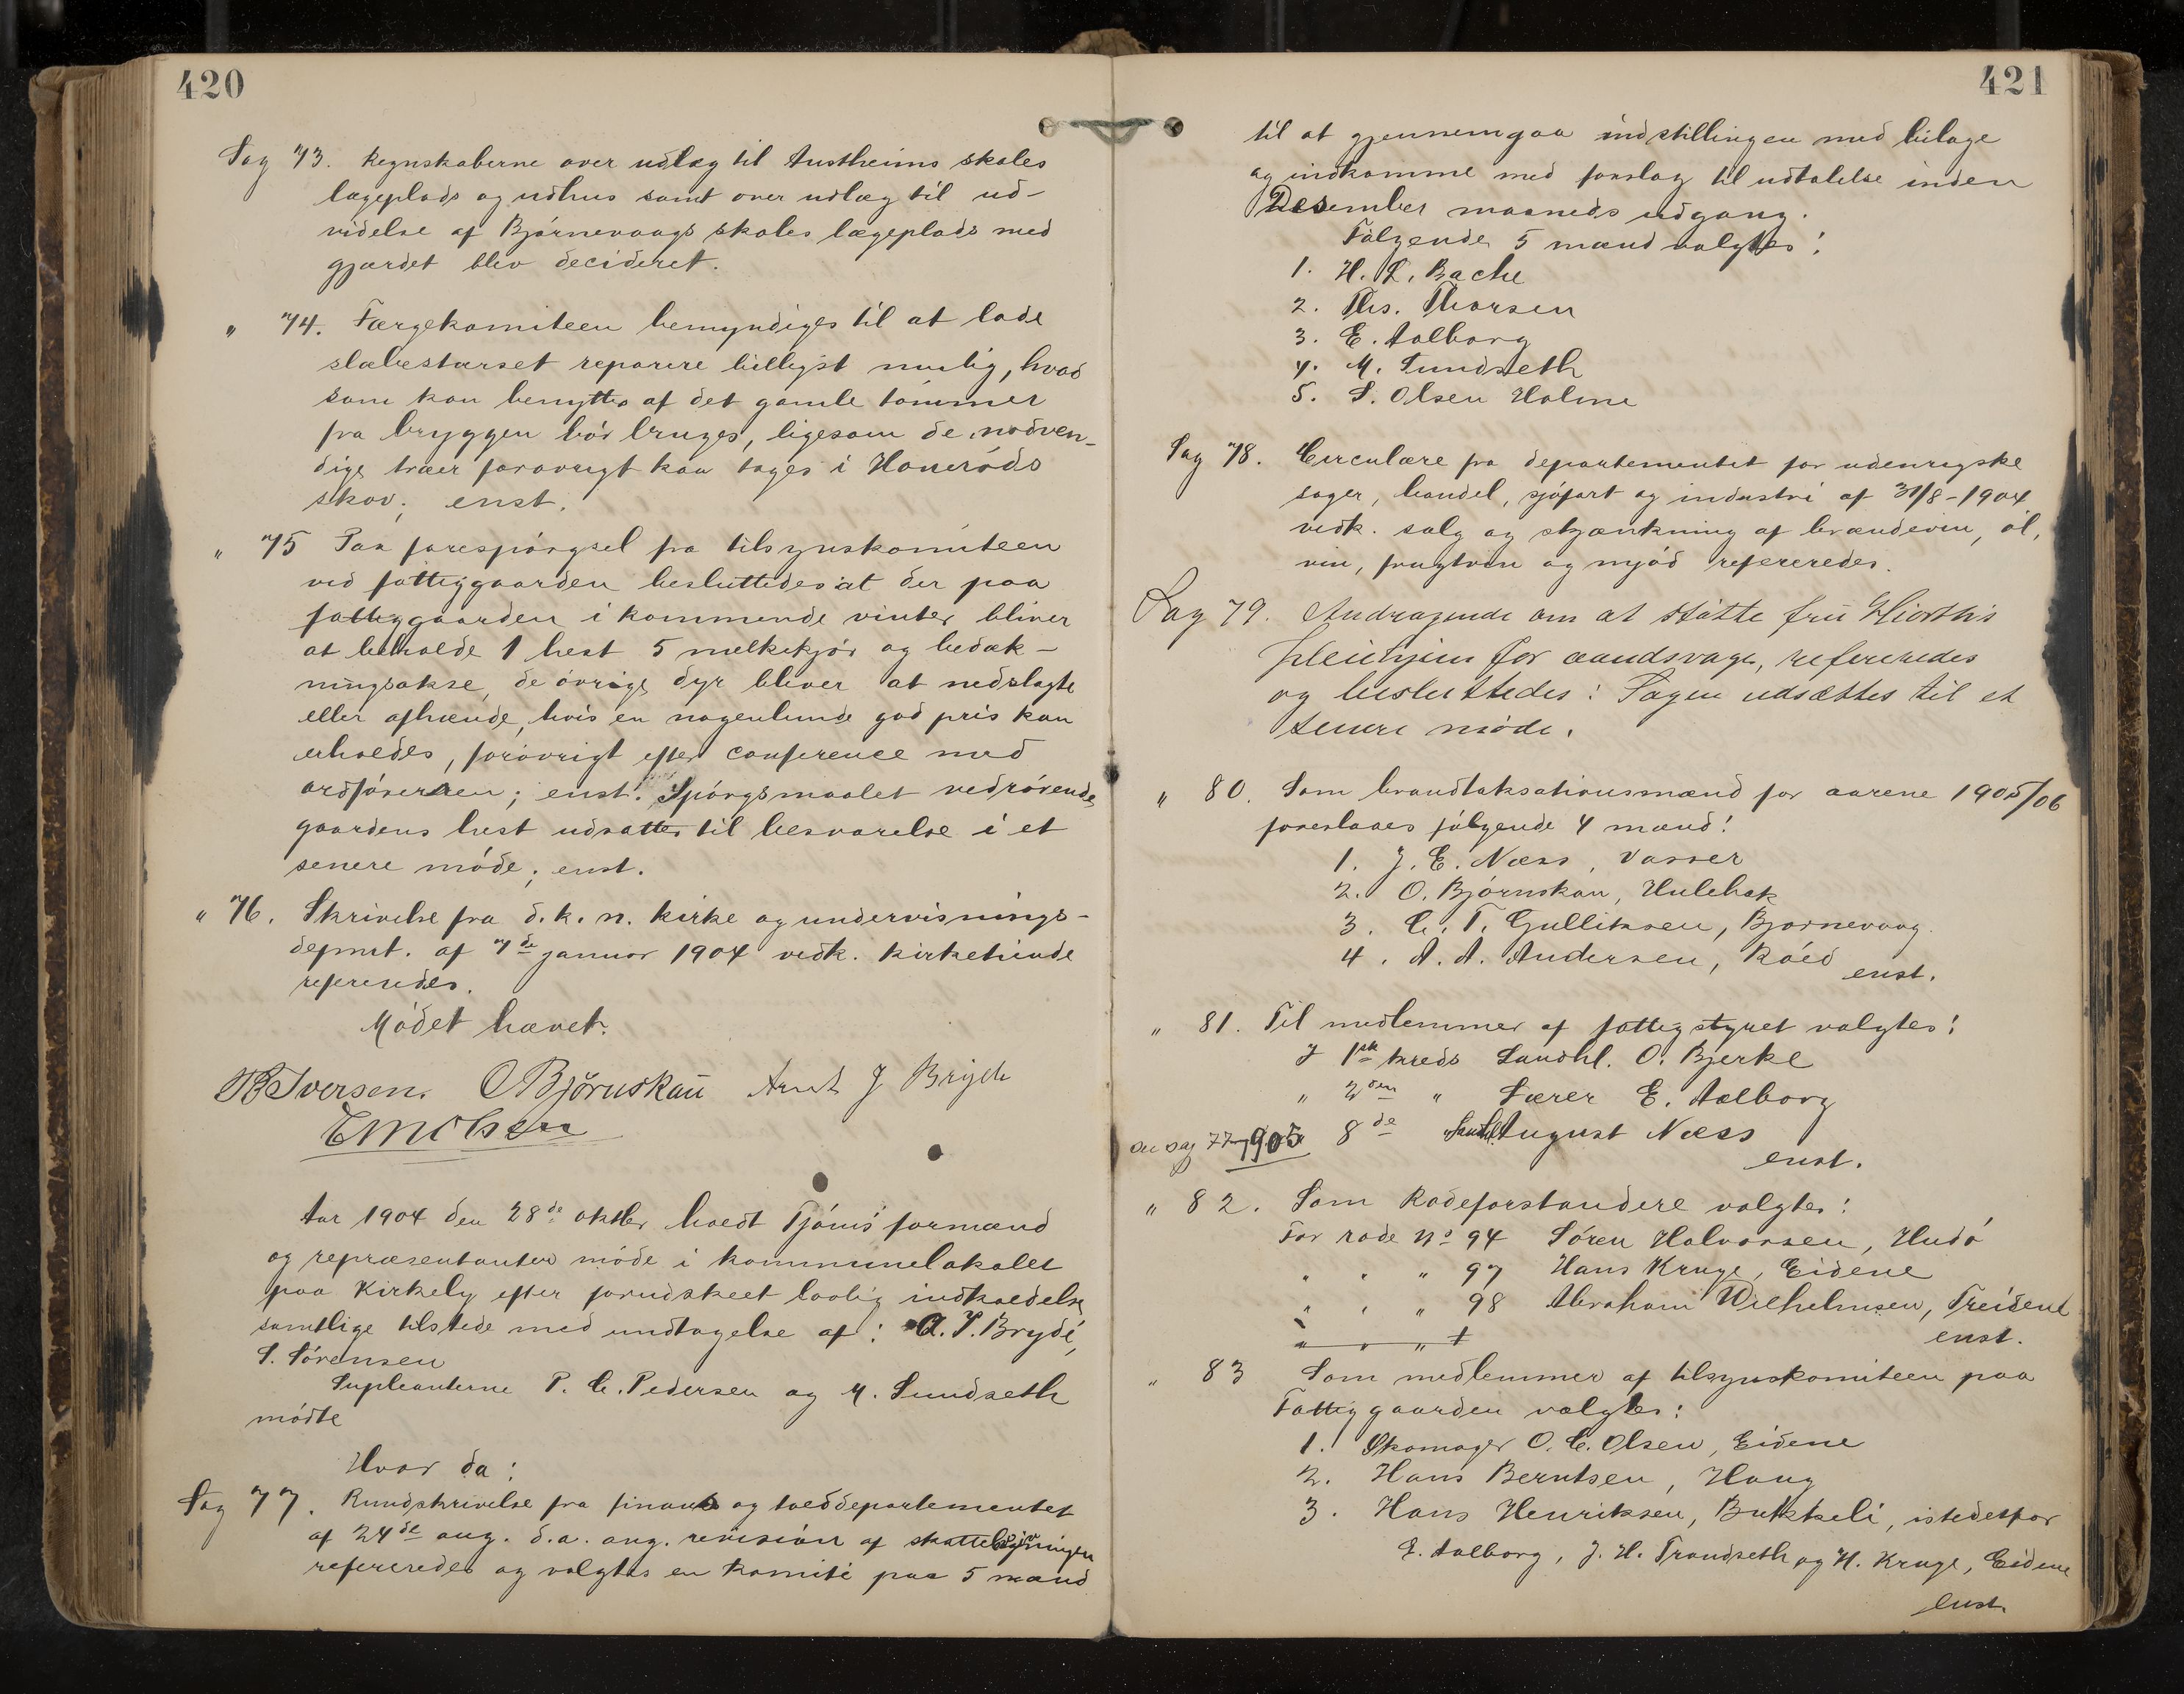 420
Sag 73. Regnskaberne over udlæg til Austheims skoles
lægeplads og udhus samt over udlæg til ud-
videlse af Bjørnevaags skoles lægeplads med
gjærdet blev decideret.
" 74. Færgekomiteen bemyndiges til at lade
slæbestærset reparere billigst mulig, hvad
som kan benyttes af det gamle tømmer
fra bryggen bør bruges, ligesom de nødven-
dige træer forøvrigt kan tages i Honerøds
skov; enst.
" 75 Paa forespørgsel fra tilsynskomiteen
ved fattiggaarden besluttedes at der paa
fattiggaarden i kommende vinter bliver
at beholde 1 hest 5 melkekjør og bedæk-
ningsokse, de øvrige dyr bliver at nedslagte
eller afhænde, hvis en nogenlunde god pris kan
erholdes, forøvrigt efter conference med
ordføreren; enst. Spørgsmaalet vedrørende
gaardens hest udsattes til besvarelse i et
senere møde; enst.
" 76. Skrivelse fra d. k. n. kirke og undervisnings-
depmt. af 7de januar 1904 vedk. kirketiende
refereredes.
Mødet hævet.
B Iversen. O Bjørnskau Arnt J Bryde
E M Olsen
Aar 1904 den 28de oktbr holdt Tjømø formænd
og repræsentanter møde i kommunelokalet
paa Kirkely efter forudskeet lovlig indkaldelse
samtlige tilstede med undtagelse af: A. J. Bryde,
S. Sørensen
Supleanterne P. C. Pedersen og M. Sundseth
mødte
Hvor da:
Sag 77. Rundskrivelse fra finans og tolddepartementet
af 24de aug. d.a. ang. revision af skattelovgivningen
refereredes og valgtes en komite paa 5 mænd
421
til at gjennemgaa indstillingen med bilage
og indkomme med forslag til udtalelse inden
Desember maaneds udgang.
Følgende 5 mænd valgtes:
1. H. L. Bache
2. Ths. Thorsen
3. E. Aalborg
4. M. Sundseth
5. S. Olsen Holme
Sag 78. Circulære fra departementet for udenrigske
sager, handel, sjøfart og industri af 31/8-1904
vedk. salg og skjænkning af brændevin, øl,
vin, frugtvin og mjød refereredes.
Sag 79. Andragende om at støtte fru Hiorths
pleiehjem for aandsvage, refereredes
og besluttedes: Sagen udsættes til et
senere møde.
" 80. Som brandtaksationsmænd for aarene 1905/06
foreslaaes følgende 4 mænd:
1. J. E. Næss, Vasser
2. O. Bjørnskau, Hulebak
3. C. T. Gulliksen, Bjørnevaag
4. A. A. Andersen, Røed
enst.
" 81. Til medlemmer af fattigstyret valgtes:
I 1ste kreds Landhl. O. Bjerke
" 2den " Lærer E. Aalborg
se sag 77-1905 8de Landhl. August Næss
enst.
" 82. Som Rodeforstandere valgtes:
For rode No 94 Søren Halvorsen, Hudø
" " " 97 Hans Kruge, Eidene
" " " 98 Abraham Wilhelmsen, Treidene
" " "
enst.
" 83 Som medlemmer af tilsynskomiteen paa
Fattiggaarden valgtes:
1. Skomager O. C. Olsen, Eidene
2. Hans Berntsen, Haug
3. Hans Henriksen, Bukkeli, istedetfor
E. Aalborg, J. H. Trondseth og H. Kruge, Eidene
enst.